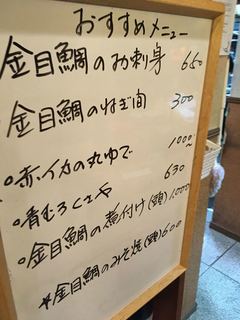 おすすめメニュー
金目鯛のお刺身 650
金目鯛のねぎ間 300
・赤イカの丸ゆで 1000〜
・青むろくさや 630
・金目鯛の煮付け(頭) 1000
*金目鯛のみそ焼(頭) 600